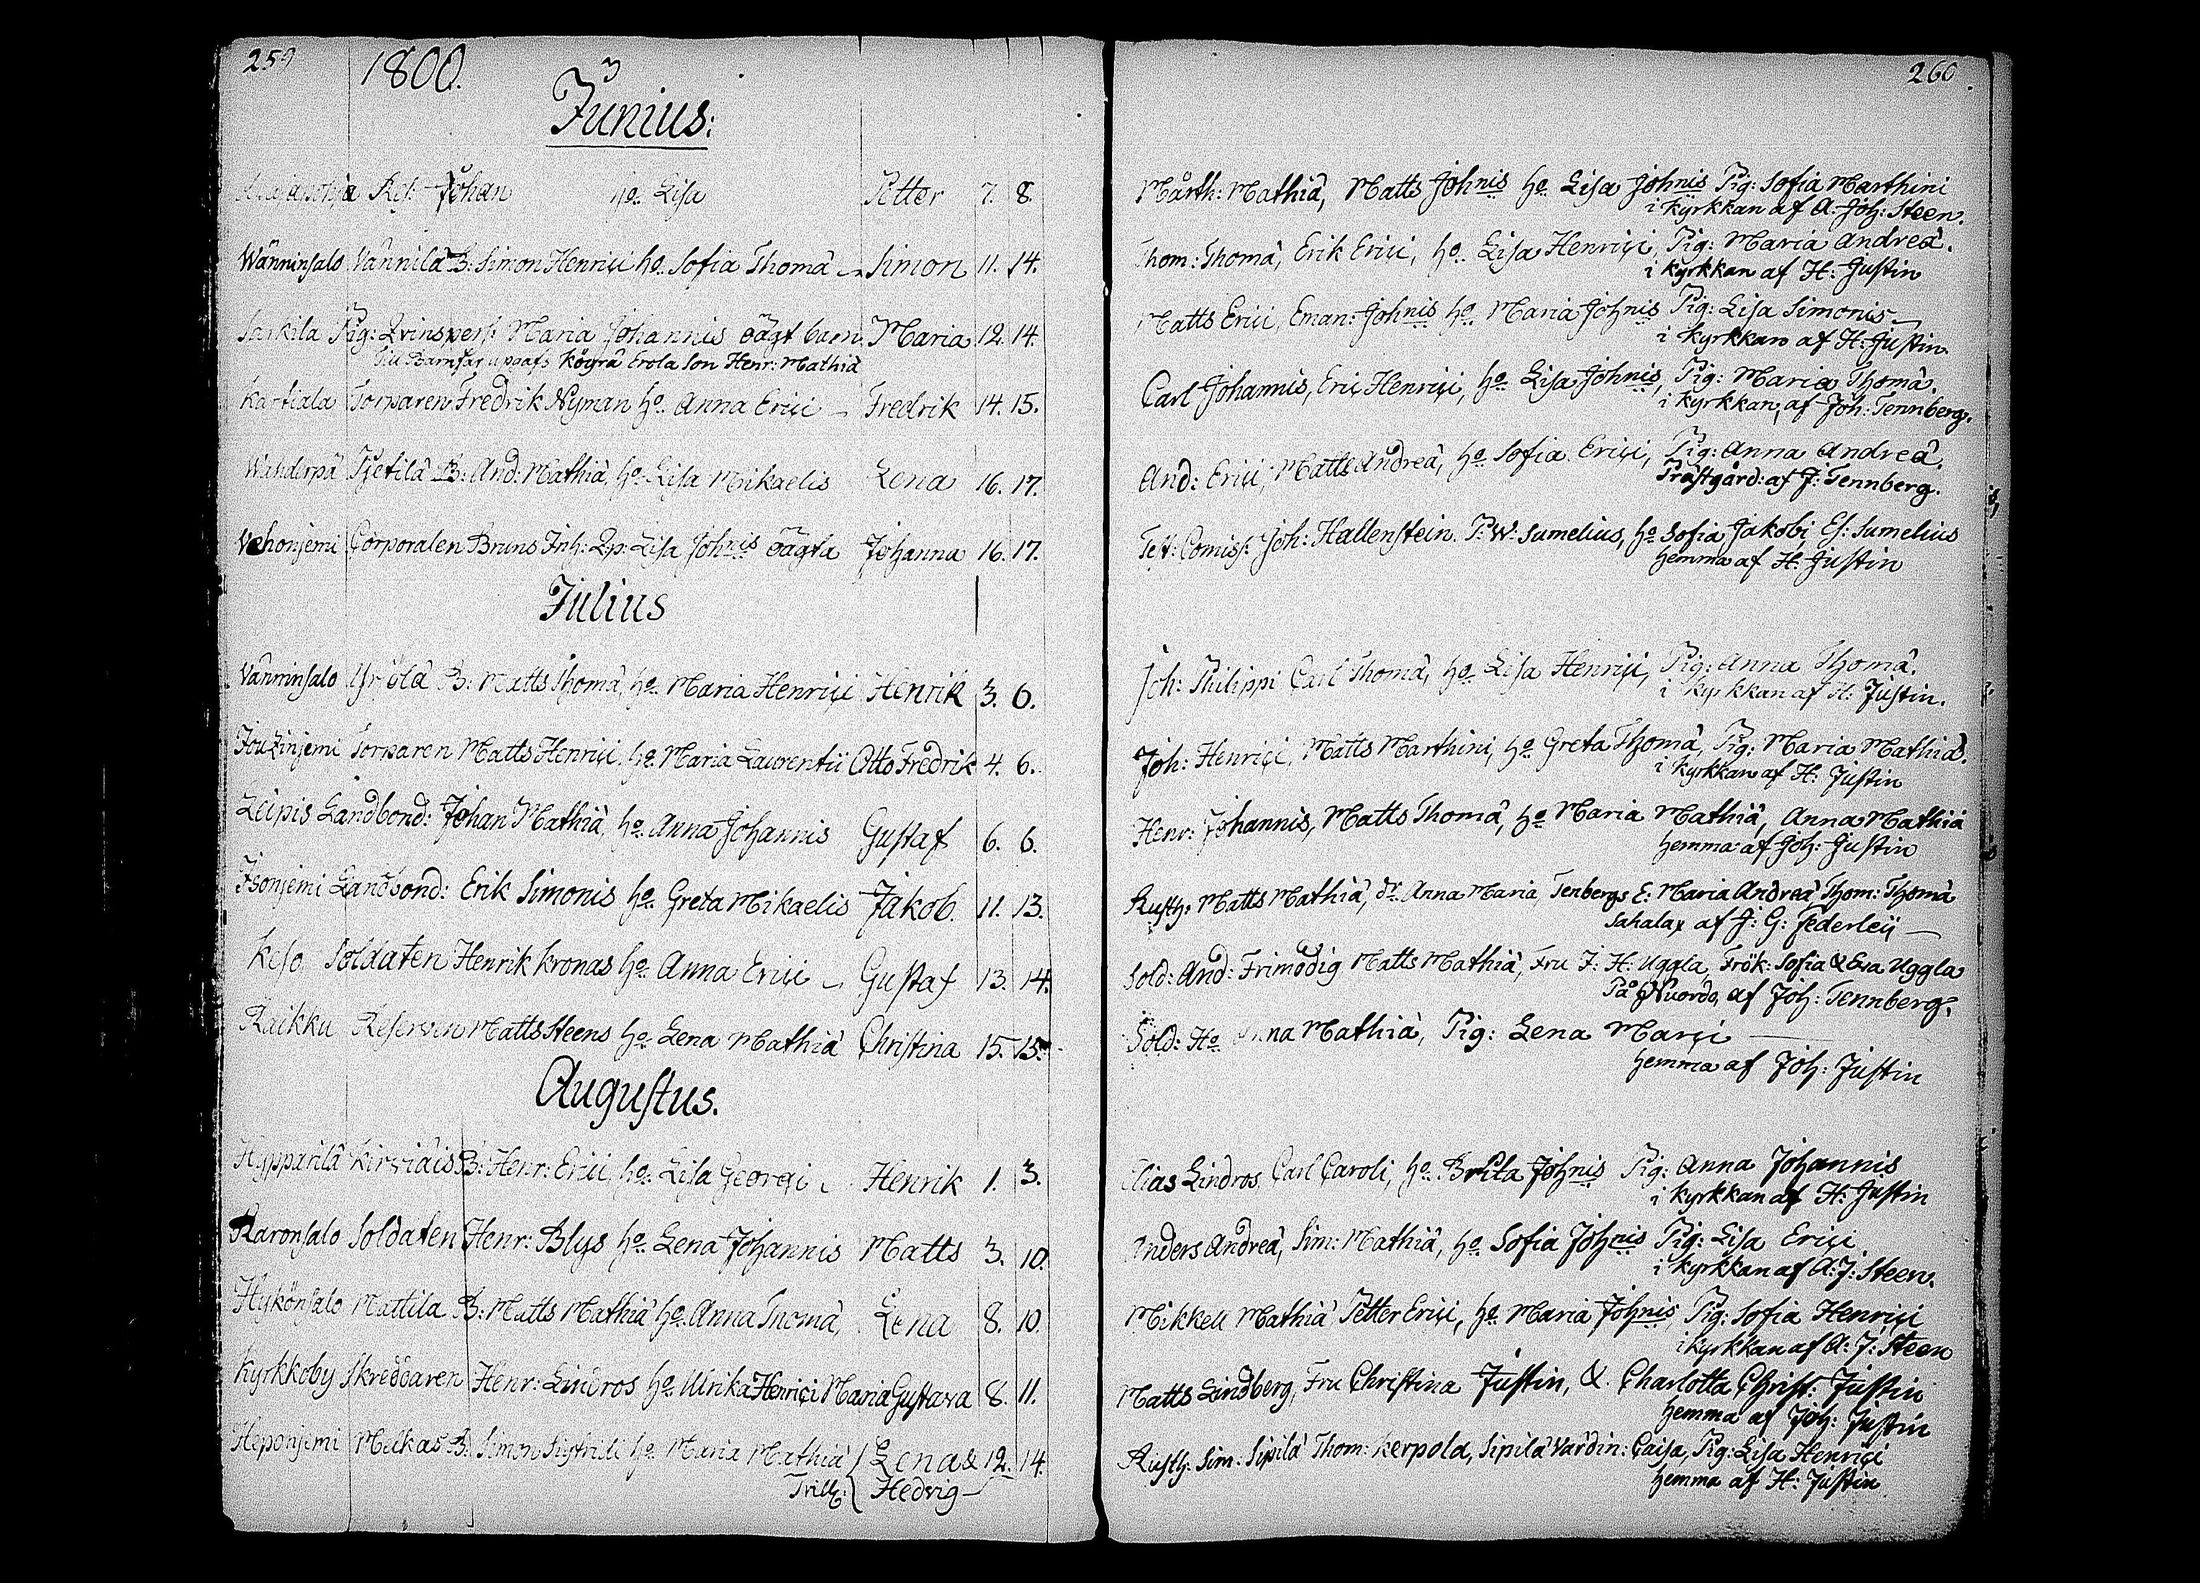 259
1800.
Junius:
Johan ho. Lisa Petter 7. 8.
Wänninsalo Vännilä B: Simon Henriçi ho. Sofia Thomä Simon 11. 14.
Särkila Pig: Maria Johannis oägt barn Maria 12. 14.
Köyrä Erola son Henr: Mathiä
Torparen Fredrik Nyman ho. Anna Eriçi Fredrik 14. 15.
B: And: Mathiä, ho. Lisa Mikaelis Lena 16. 17.
Vehonjemi Corporalen Bruns Inh: Lisa Johnis oägta Johanna 16. 17.
Julius
Vänninsalo B: Matts Thomä, ho. Maria Henriçi Henrik 3. 6.
Torparen Matts Henriçi, ho. Maria Laurentii Otto Fredrik 4. 6.
Leipis Landbond: Johan Mathiä, ho. Anna Johannis Gustaf 6. 6.
Isonjemi Landbond: Erik Simonis ho. Greta Mikaelis Jakob. 11. 13.
Keso Soldaten Henrik Kronas ho. Anna Eriçi Gustaf 13. 14.
Raikku Reserven Matts Steens ho. Lena Mathiä Christina 15. 15.
Augustus.
Hypparilä Kirviäis B: Henr: Eriçi, ho. Lisa Georgi Henrik 1. 3.
Karonsalo Soldaten Henr: Blys ho. Lena Johannis Matts 3. 10.
Hykönsalo Mattila B: Matts Mathiä ho. Anna Thomä, Lena 8. 10.
Kyrkkoby Skreddaren Henr: Lindros ho. Ulrika Henriçi Maria Gustava 8. 11.
Heponjemi B: Simon Sigfridi ho. Maria Mathiä Lena & 12. 14.
Trill: Hedvig
260
Mårth: Mathiä, Matts Johnis ho. Lisa Johnis Pig: Sofia Marthini
i kyrkkan af A: Joh: Steen.
Thom: Thomä, Erik Eriçi, ho. Lisa Henriçi, Pig: Maria Andreä.
i kyrkkan af H: Justin
Matts Eriçi, Eman: Johnis ho. Maria Johnis Pig: Lisa Simonis
i kyrkkan af H: Justin.
Carl Johannis, Eriç Henriçi, ho. Lisa Johnis, Pig: Maria Thomä.
i kyrkkan, af Joh: Tennberg.
And: Eriçi, Matts Andreä, ho. Sofia Eriçi, Pig: Anna Andreä.
Prästgård: af J: Tennberg.
Comiss: Joh: Hallenstein. P: W: Sumelius, ho. Sofia Jakobi, Es: Sumelius
hemma af H: Justin
Joh: Philippi Carl Thomä, ho. Lisa Henriçi, Pig: Anna Thomä.
i kyrkkan af H: Justin.
Joh: Henriçi, Matts Marthini, ho. Greta Thomä, Pig: Maria Mathiä.
i kyrkkan af H: Justin
Henr: Johannis, Matts Thomä, ho. Maria Mathiä, Anna Mathiä
hemma af Joh: Justin
Rusth: Matts Mathiä, dr. Anna Maria, Tenbergs E: Maria Andreä Thom: Thomä
Sahalax af J: G: Federleij
Sold: And: Frimodig Matts Mathiä, Fru J: H: Uggla, Frök: Sofia & Eva Uggla
På Nuordo, af Joh: Tennberg.
Sold: Ho. Anna Mathiä, Pig: Lena Marçi
hemma af Joh: Justin
Elias Lindros, Carl Caroli, ho. Brita Johnis Pig: Anna Johannis
i kyrkkan af H: Justin
Anders Andreä, Sim: Mathiä, ho. Sofia Johnis Pig: Lisa Eriçi.
i kyrkkan af A: J: Steen.
Mikkell Mathiä Petter Eriçi, ho. Maria Johnis Pig: Sofia Henriçi
i kyrkkan af A: J: Steen
Matts Lindberg, Fru Christina Justin, & Charlotta Christ: Justin
hemma af Joh: Justin
Rusth: Sim: Sipilä Thom: Kerpola, Sipilä Värdin: Caisa, Pig: Lisa Henriçi
hemma af H: Justin